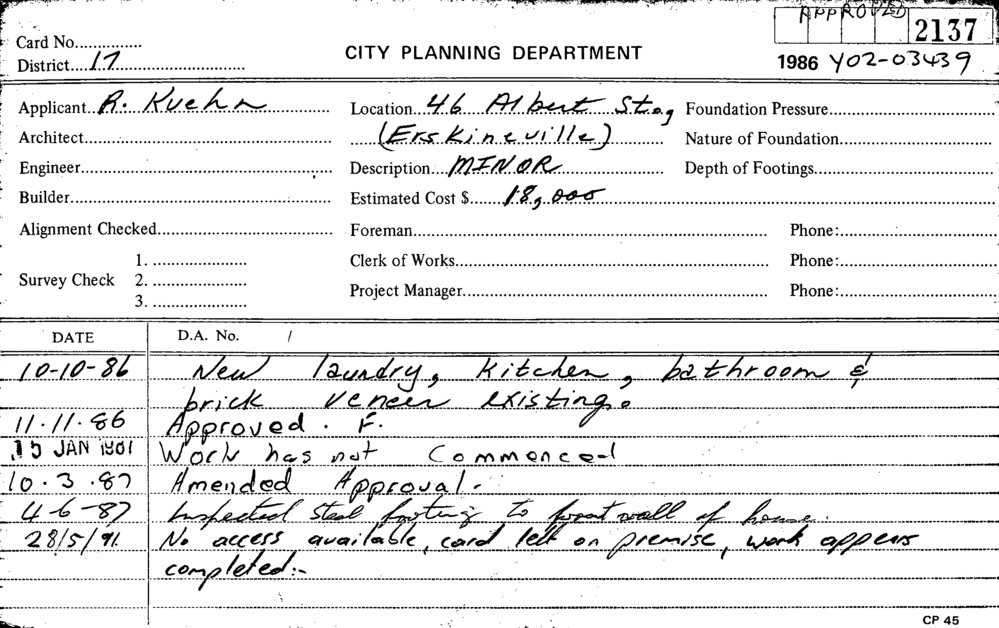 APPROVED
2137
Card No...............
District....17............................
CITY PLANNING DEPARTMENT
1986 Y02-03439
Applicant...R. Kuehn...............
Location...46 Albert St.,
Foundation Pressure...............
Architect...............
(Erskineville)
Nature of Foundation...............
Engineer...............
Description...MINOR...............
Depth of Footings...............
Builder...............
Estimated Cost $.......18,000...............
Alignment Checked...............
Foreman...............
Phone:...............
Survey Check
1. ...............
2. ...............
3. ...............
Clerk of Works...............
Phone:...............
Project Manager...............
Phone:...............
DATE
D.A. No. /
10-10-86 New laundry, kitchen, bathroom &
brick veneer existing.
11.11.86 Approved. F.
15 JAN Work has not Commenced
10.3.87 Amended Approval.
4-6-87 Inspected steel footing to front wall of house.
28/5/91. No access available, card left on premise, work appears
completed:-
CP 45